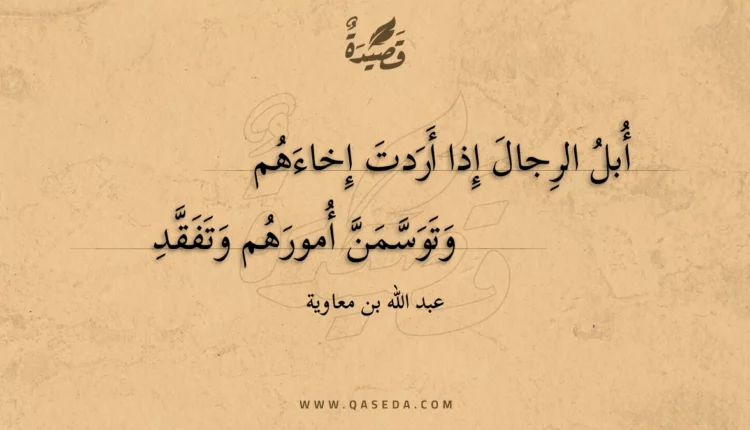 قَصِيْدَةٌ
أُبلُ الرِجالَ إِذا أَرَدتَ إِخاءَهُم
وَتَوَسَّمَنَّ أُمورَهُم وَتَفَقَّدِ
عبد الله بن معاوية
WWW.QASEDA.COM